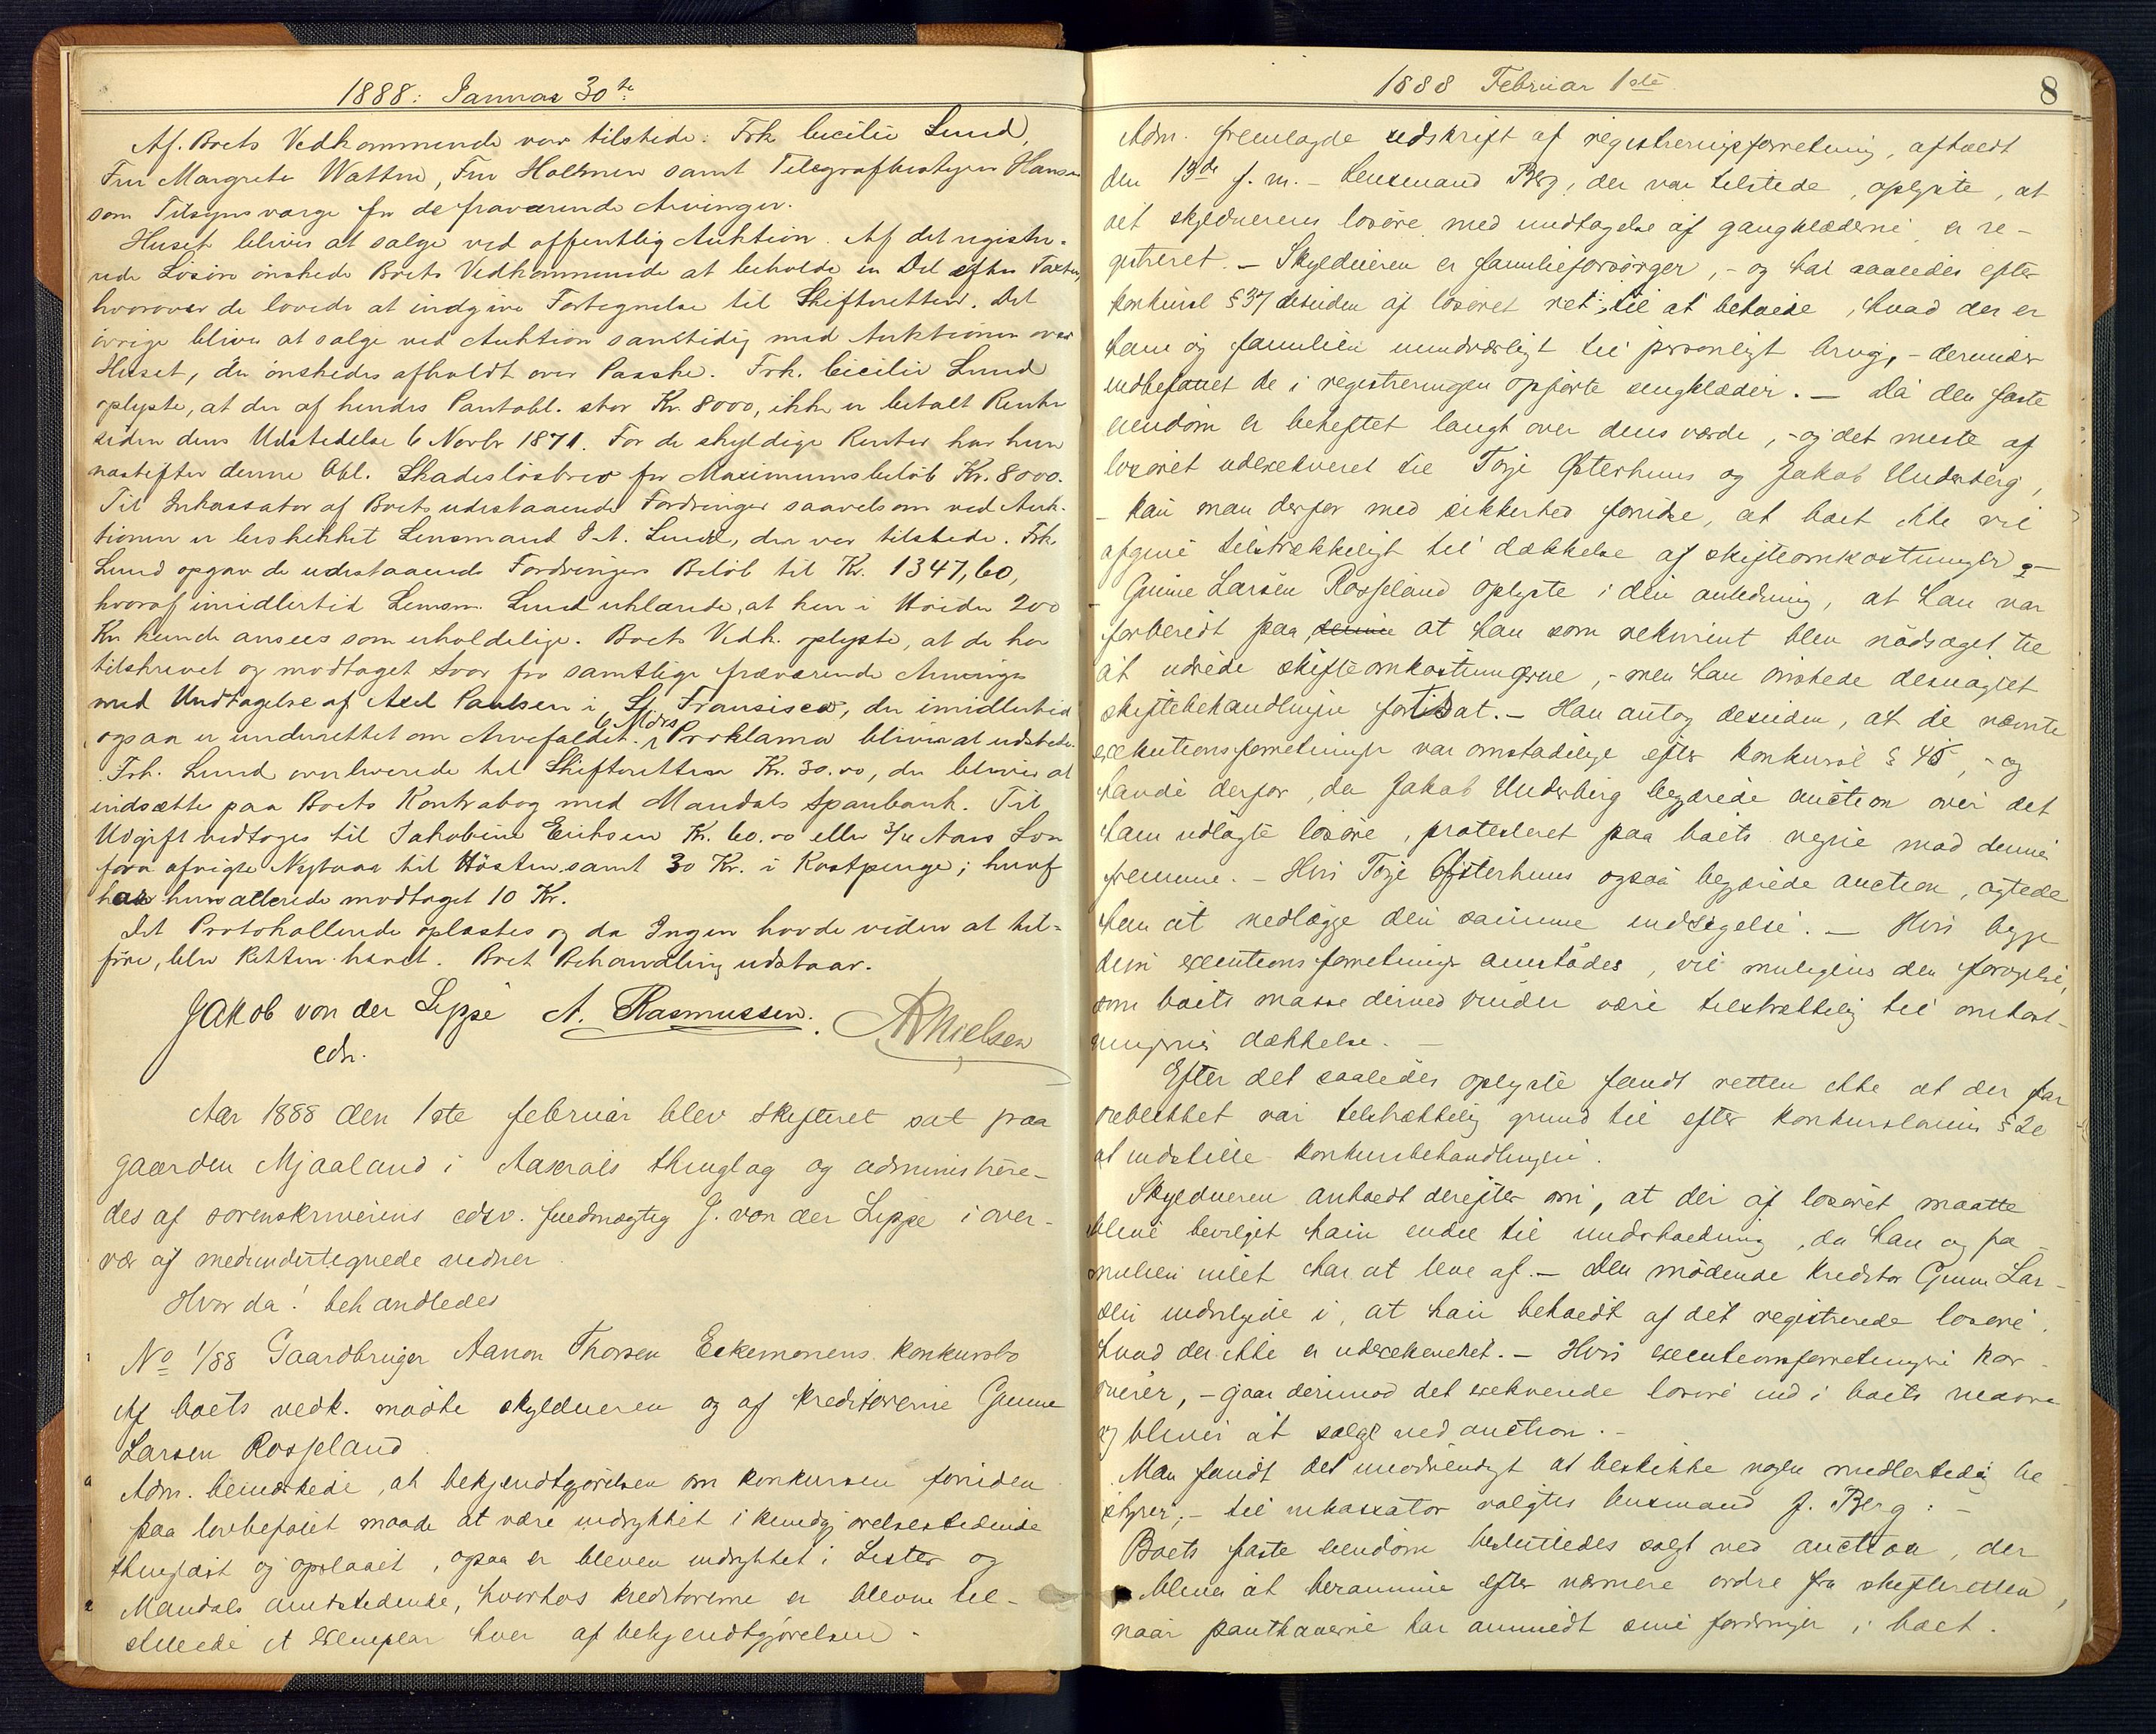 1888: Januar 30te
Af Boets Vedkommende var tilstede: Frk Cecilie Lund,
Fru Margrete Wattne, Fru Holtmen samt Telegrafbestyrer Hansen
som Tilsynsværge for de fraværende Arvinger.
Huset bliver at sælge ved offentlig Auktion. Af det registre-
rede Løsøre ønskede Boets Vedkommende at beholde en Del efter Taxten,
hvorover de lovede at indgive Fortegnelse til Skifteretten. Det
øvrige bliver at sælge ved Auktion samtidig med Auktionen over
Huset, der ønskedes afholdt over Paaske. Frk. Cecilie Lund
oplyste, at der af hendes Pantobl. stor Kr. 8000, ikke er betalt Renter
siden dens Udstedelse 6 Novbr 1871. For de skyldige Renter har hun
næstefter denne Obl. Skadesløsbrev for Maximumsbeløb Kr. 8000.
Til Inkassator af Boets udestaaende Fordringer saavelsom ved Auk-
tionen er beskikket Lensmand Lund, der var tilstede. Frk.
Lund opgav de udestaaende Fordringers Beløb til Kr. 1347,60,
hvoraf imidlertid Lensm. Lund erklærede, at kun i Høiden 200
Kr kunde ansees som erholdelige. Boets Vedk. oplyste, at de har
tilskrevet og modtaget Svar fra samtlige fraværende Arvinger
med Undtagelse af Axel Paulsen i St Fransisco, der imidlertid
ogsaa er underrettet om Arvefaldet. 6 Mdrs Proklama bliver at udstede.
Frk. Lund overleverede til Skifteretten Kr. 30.00, der bliver at
indsætte paa Boets Kontrabog med Mandals Sparebank. Til
Udgift vedtoges til Jakobine Eriksen Kr. 60.00 eller 3/4 Aars Løn
fra afvigte Nytaar til Høsten samt 30 Kr. i Kostpenge; hvoraf
har hun allerede modtaget 10 Kr.
Det Protokollerede oplæstes og da Ingen havde videre at til-
føre, blev Retten hævet. Boets Behandling udstaar.
Jakob von der Lippe A. Rasmussen. Nielsen
edv.
Aar 1888 den 1ste februar blev skifteret sat paa
gaarden Mjaaland i Aaserals thinglag og administrere-
des af sorenskriverens edsv. fuldmægtig J. von der Lippe i over-
vær af medundertegnede vidner
Hvor da! behandledes
No 1/88 Gaardbruger Aanon Thorsen Eekemonens konkursbo
Af boets vedk. mødte skyldneren og af kreditorerne Gunne
Larsen Rosseland
Adm. bemærkede, at bekjendtgjørelsen om konkursen foruden
paa lovbefalet maade at være indrykket i kundgjørelsestidende
thinglæst og opslaaet, ogsaa er bleven indrykket i Lister og
Mandals amtstidende, hvorhos kreditorerne er blevne til-
stillede et exemplar hver af bekjendtgjørelsen -
1888 Februar 1ste
8
Adm. fremlagde udskrift af registreringsforretning, afholdt
den 13de f. m. - Lensmand Berg, der var tilstede, oplyste, at
alt skyldnerens løsøre med undtagelse af gangklæderne er re-
gistreret. - Skyldneren er familieforsørger, - og har saaledes efter
konkursl § 37 desuden af løsøret ret til at beholde, hvad der er
ham og familien uundværligt til personligt brug, - derunder
indbefattet de i registreringen opførte sengklæder. - Da den faste
eiendom er beheftet langt over dens værde, - og det meste af
løsøret udexekveret til Torje Østerhuus og Jakob Underberg,
- kan man derfor med sikkerhed forudse, at boet ikke vil
afgive tilstrækkeligt til dækkelse af skifteomkostninger -
- Gunne Larsen Rosseland oplyste i den anledning, at han var
forberedt paa at han som rekvirent blev nødsaget til
at udrede skifteomkostningerne, - men han ønskede desuagtet
skiftebehandlingen fortsat. - Han antog desuden, at de nævnte
exekutionsforretninger var omstødelige efter konkursl § 45, - og
havde derfor, da Jakob Underberg begjærede auction over det
ham udlagte løsøre, protesteret paa boets vegne mod dennes
fremme. - Hvis Torje Østerhuus ogsaa begjærede auction, agtede
han at nedlægge den samme indsigelse. - Hvis begge
disse executionsforretninger omstødes, vil muligens den forøgelse,
som boets masse derved vinder være tilstrækkelig til omkost-
ningernes dækkelse. -
Efter det saaledes oplyste fandt retten ikke at der for
øieblikket var tilstrækkelig grund til efter konkurslovens § 20
at indstille konkursbehandlingen.
Skyldneren anholdt derefter om, at der af løsøret maatte
blive bevilget ham endel til underholdning, da han og fa-
milien intet har at leve af. - Den mødende kreditor Gunne Lar-
sen indvilgede i, at han beholdt af det registrerede løsøre,
hvad der ikke er udexekveret. - Hvis executionsforretningerne
- gaar derimod det exekverede løsøre ind i boets masse
og bliver at sælge ved auction. -
Man fandt det unødvendigt at beskikke nogen midlertidig be-
styrer, - til inkassator valgtes lensmand J. Berg. -
Boets faste eiendom besluttedes solgt ved auction, der
bliver at beramme efter nærmere ordre fra skifteretten,
naar panthaverne har anmeldt sine fordringer i boet.